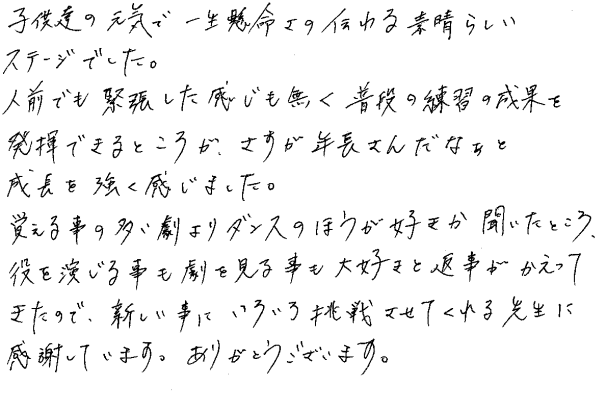 子供達の元気で一生懸命さの伝わる素晴らしい
ステージでした。
人前でも緊張した感じも無く普段の練習の成果を
発揮できるところが、さすが年長さんだなぁと
成長を強く感じました。
覚える事の多い劇よりダンスのほうが好きか聞いたところ、
役を演じる事も劇を見る事も大好きと返事がかえって
きたので、新しい事にいろいろ挑戦させてくれる先生に
感謝しています。ありがとうございます。